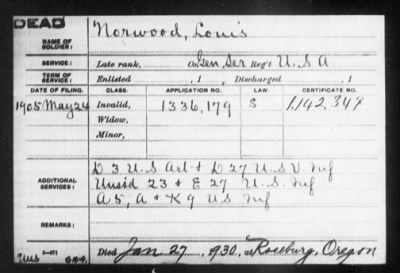 DEAD
NAME OF SOLDIER: Norwood, Louis
SERVICE: Late rank, Gen Ser Reg't U.S.A
TERM OF SERVICE: Enlisted , 1 , Discharged , 1
DATE OF FILING. CLASS. APPLICATION NO. LAW. CERTIFICATE NO.
1905 May 24 Invalid, 1336,179 S 1,142,348
Widow,
Minor,
D 3 U.S Art & D 27 U.S.V Inf
ADDITIONAL SERVICES: Unasid 23 & E 27 U.S. Inf
A 5, A & K 9 US Inf
REMARKS:
Died Jan 27, 1930, at Roseburg, Oregon